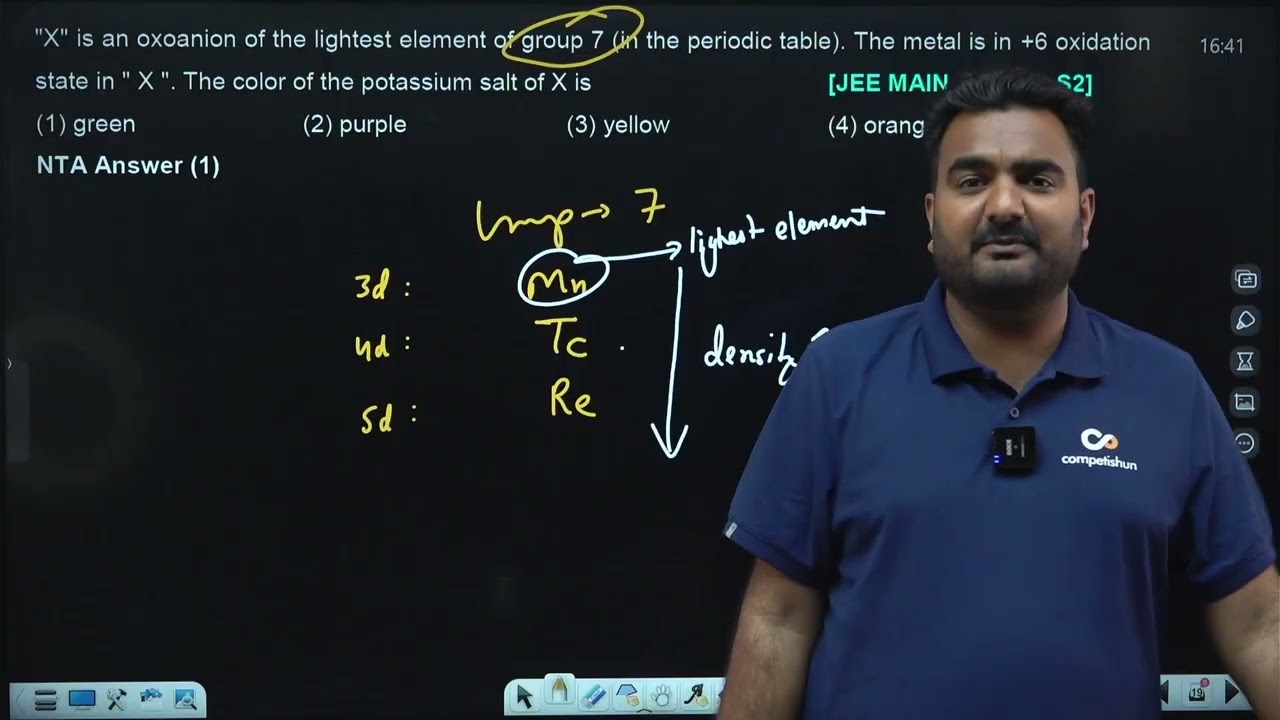 "X" is an oxoanion of the lightest element of group 7 (in the periodic table). The metal is in +6 oxidation
16:41
state in " X ". The color of the potassium salt of X is
[JEE MAIN S2]
(1) green (2) purple (3) yellow (4) orang
NTA Answer (1)
→ 7
3d : Mn → lighest element
4d : Tc . density
5d : Re
competishun
19